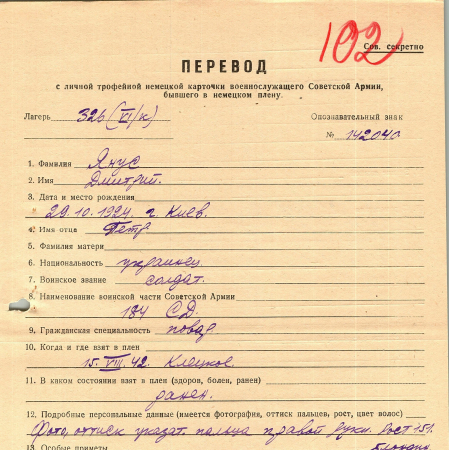 102
Сов. секретно
ПЕРЕВОД
с личной трофейной немецкой карточки военнослужащего Советской Армии,
бывшего в немецком плену.
Лагерь 326 (VI/к) Опознавательный знак
№ 142040
1. Фамилия Янус
2. Имя Дмитрий.
3. Дата и место рождения
29.10.1924 г. Киев.
4. Имя отца Петр
5. Фамилия матери
6. Национальность украинец.
7. Воинское звание солдат.
8. Наименование воинской части Советской Армии
184 СД.
9. Гражданская специальность повар
10. Когда и где взят в плен
15.VIII.42. Клецкое.
11. В каком состоянии взят в плен (здоров, болен, ранен)
ранен.
12. Подробные персональные данные (имеется фотография, оттиск пальцев, рост, цвет волос)
Фото, оттиск указат. пальца правой руки. Рост 151.
13 Особые приметы блондин